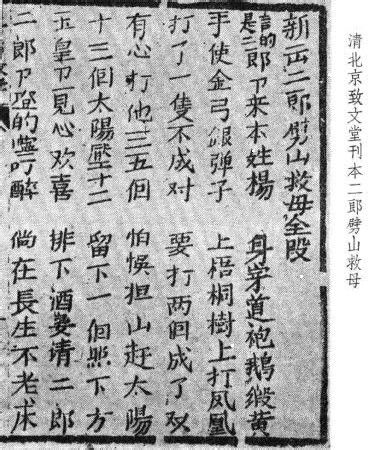 清北京致文堂刊本二郎劈山救母
新出二郎劈山救母全段
言的是二郎爷来本姓楊 身穿道袍鵝缎黄
手使金弓銀弹子 上梧桐樹上打凤凰
打了一隻不成对 要打两個成了双
有心打他三五個 怕悮担山赶太陽
十三個太陽壓十二 留下一個照下方
玉皇爷一見心欢喜 排下酒宴请二郎
二郎爷的叮醉 倘在長生不老床